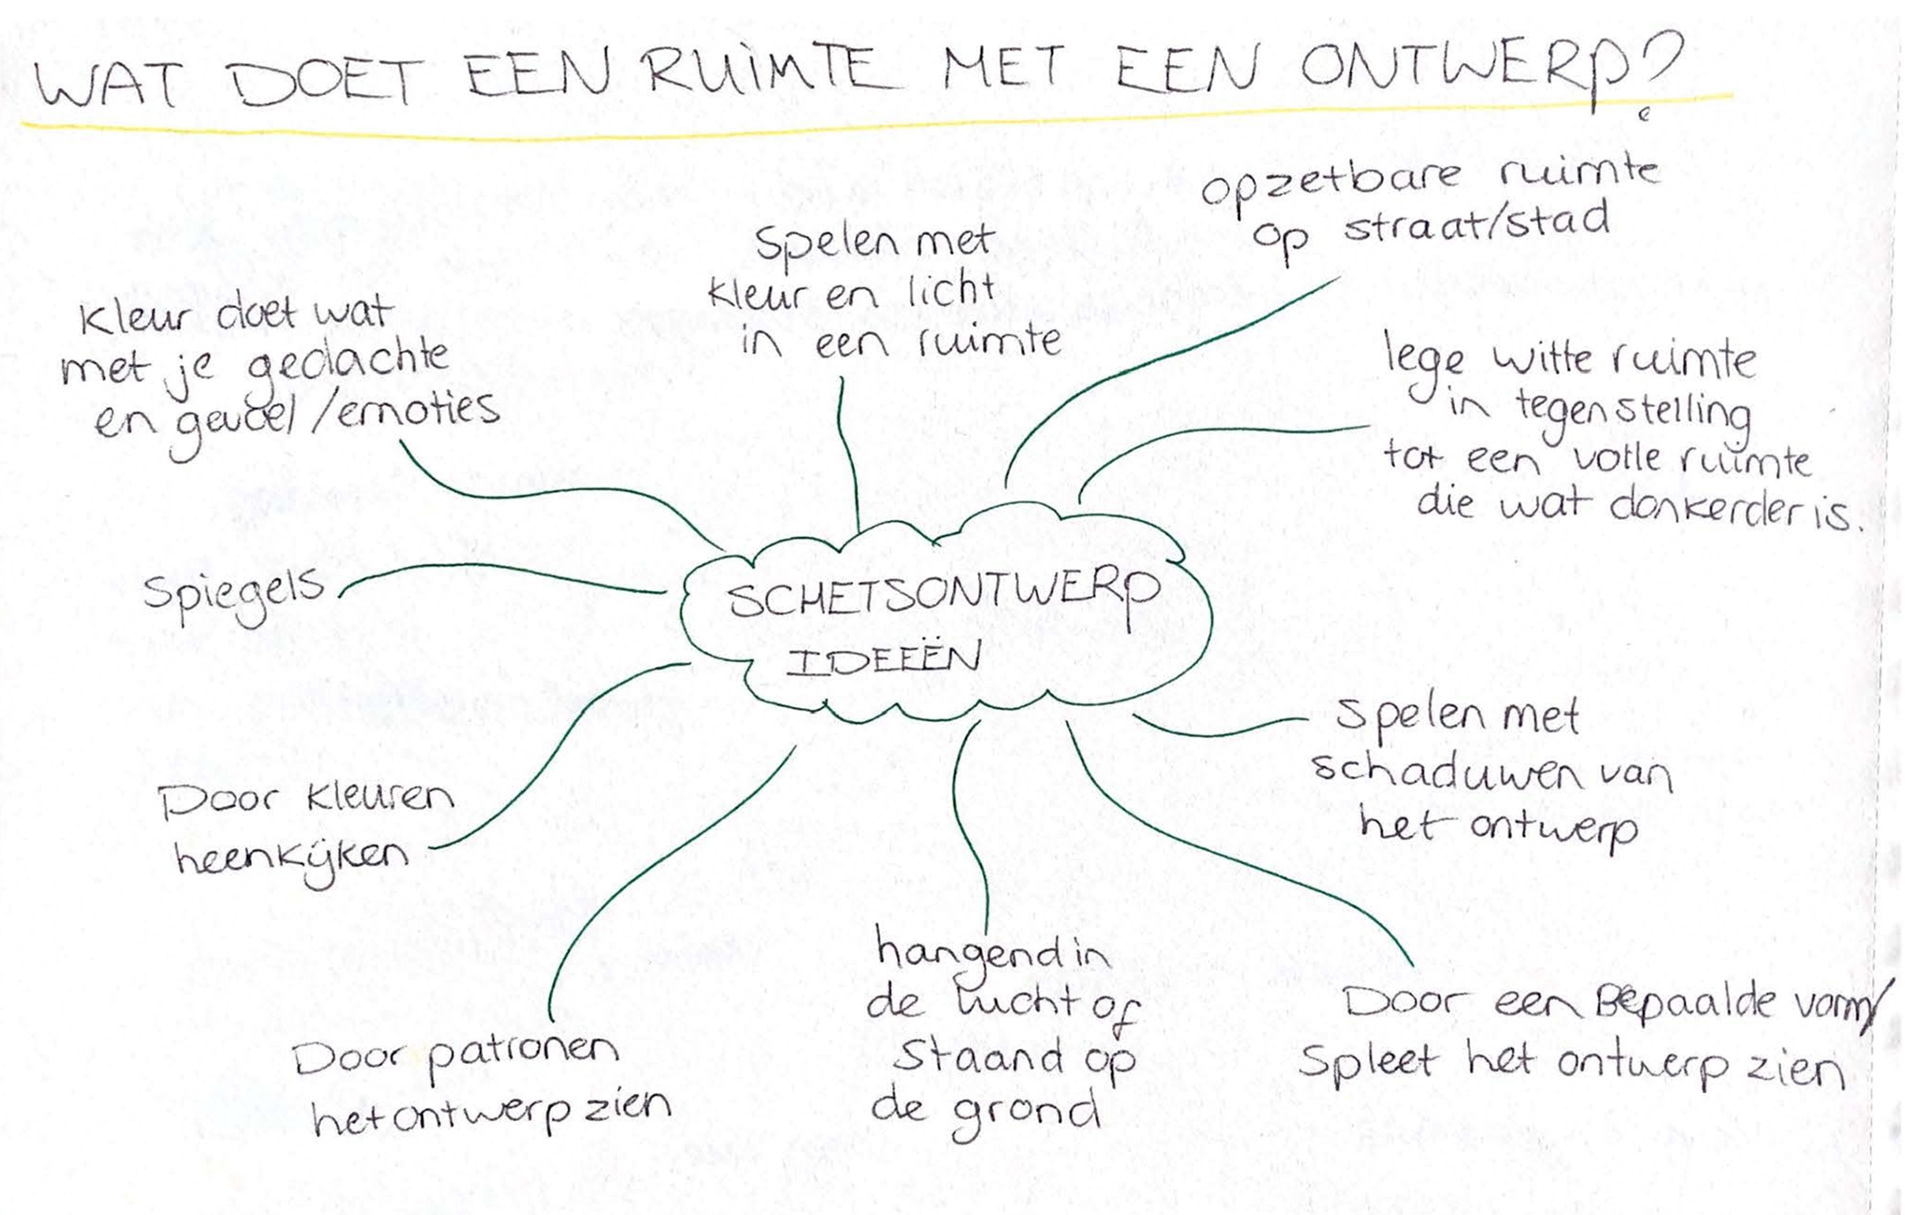 WAT DOET EEN RUIMTE MET EEN ONTWERP?
opzetbare ruimte
op straat/stad
Spelen met
kleur en licht
in een ruimte
Kleur doet wat
met je gedachte
en gevoel/emoties
lege witte ruimte
in tegenstelling
tot een volle ruimte
die wat donkerder is.
Spiegels
SCHETSONTWERP
IDEEËN
Spelen met
schaduwen van
het ontwerp
Door kleuren
heenkijken
hangend in
de lucht of
Staand op
de grond
Door een Bepaalde vorm/
Spleet het ontwerp zien
Door patronen
het ontwerp zien